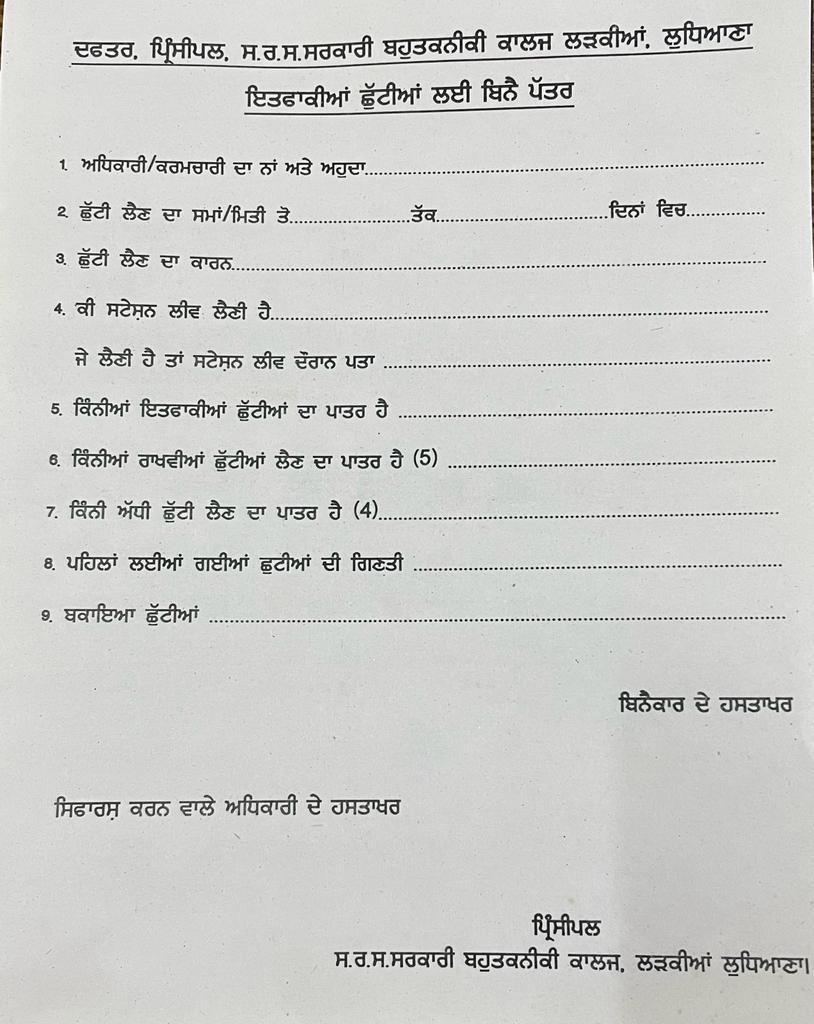 ਦਫਤਰ, ਪ੍ਰਿੰਸੀਪਲ, ਸ.ਰ.ਸ.ਸਰਕਾਰੀ ਬਹੁਤਕਨੀਕੀ ਕਾਲਜ ਲੜਕੀਆਂ, ਲੁਧਿਆਣਾ
ਇਤਫਾਕੀਆਂ ਛੁੱਟੀਆਂ ਲਈ ਬਿਨੈ ਪੱਤਰ
1. ਅਧਿਕਾਰੀ/ਕਰਮਚਾਰੀ ਦਾ ਨਾਂ ਅਤੇ ਅਹੁਦਾ..............................
2. ਛੁੱਟੀ ਲੈਣ ਦਾ ਸਮਾਂ/ਮਿਤੀ ਤੋ....................ਤੱਕ....................ਦਿਨਾਂ ਵਿਚ...............
3. ਛੁੱਟੀ ਲੈਣ ਦਾ ਕਾਰਨ..............................
4. ਕੀ ਸਟੇਸ਼ਨ ਲੀਵ ਲੈਣੀ ਹੈ..............................
ਜੇ ਲੈਣੀ ਹੈ ਤਾਂ ਸਟੇਸ਼ਨ ਲੀਵ ਦੌਰਾਨ ਪਤਾ ..............................
5. ਕਿੰਨੀਆਂ ਇਤਫਾਕੀਆਂ ਛੁੱਟੀਆਂ ਦਾ ਪਾਤਰ ਹੈ ..............................
6. ਕਿੰਨੀਆਂ ਰਾਖਵੀਆਂ ਛੁੱਟੀਆਂ ਲੈਣ ਦਾ ਪਾਤਰ ਹੈ (5) ..............................
7. ਕਿੰਨੀ ਅੱਧੀ ਛੁੱਟੀ ਲੈਣ ਦਾ ਪਾਤਰ ਹੈ (4)..............................
8. ਪਹਿਲਾਂ ਲਈਆਂ ਗਈਆਂ ਛੁਟੀਆਂ ਦੀ ਗਿਣਤੀ ..............................
9. ਬਕਾਇਆ ਛੁੱਟੀਆਂ ..............................
ਬਿਨੈਕਾਰ ਦੇ ਹਸਤਾਖਰ
ਸਿਫਾਰਸ਼ ਕਰਨ ਵਾਲੇ ਅਧਿਕਾਰੀ ਦੇ ਹਸਤਾਖਰ
ਪ੍ਰਿੰਸੀਪਲ
ਸ.ਰ.ਸ.ਸਰਕਾਰੀ ਬਹੁਤਕਨੀਕੀ ਕਾਲਜ, ਲੜਕੀਆਂ ਲੁਧਿਆਣਾ।